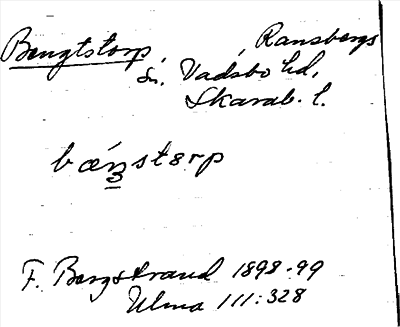 Bengtstorp Ransbergs
S. Vadsbo hd,
Skarab. l.
bæ̀nstərp
F. Bergstrand 1898-99
Ulma 111:328